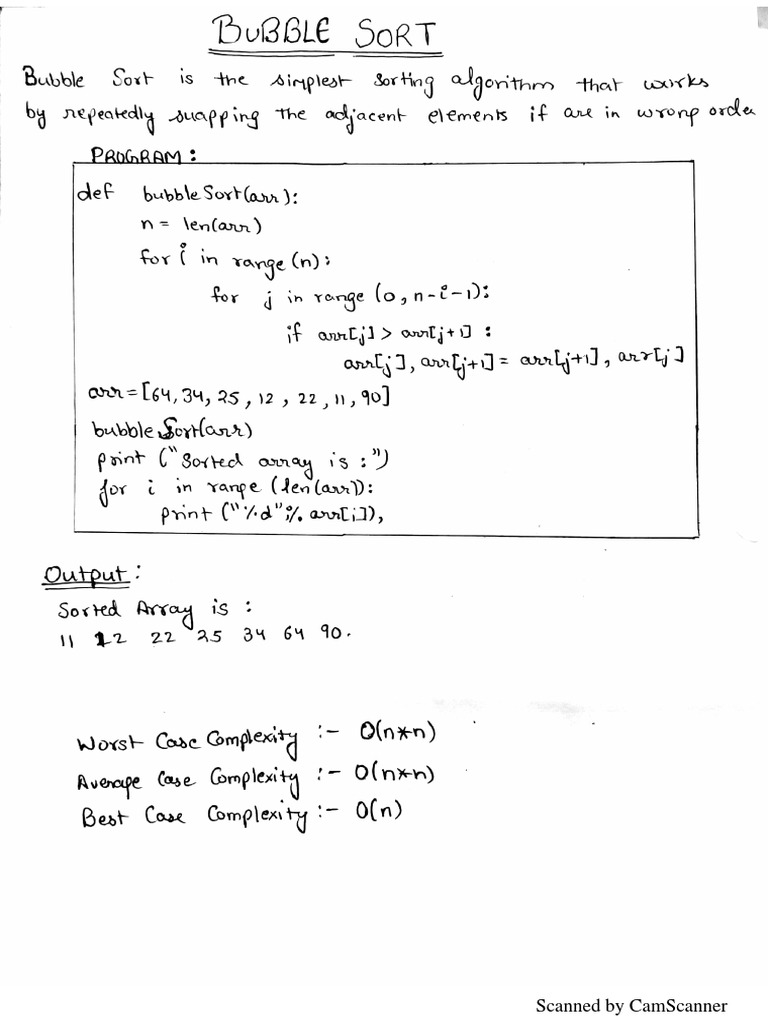 BUBBLE SORT
Bubble Sort is the simplest sorting algorithm that works
by repeatedly swapping the adjacent elements if are in wrong order
PROGRAM:
def bubbleSort(arr):
n = len(arr)
for i in range(n):
for j in range(0, n-i-1):
if arr[j] > arr[j+1] :
arr[j], arr[j+1] = arr[j+1], arr[j]
arr = [64, 34, 25, 12, 22, 11, 90]
bubbleSort(arr)
print ("Sorted array is :")
for i in range (len(arr)):
print ("%d" % arr[i]),
Output:
Sorted Array is :
11 12 22 25 34 64 90.
Worst Case Complexity :- O(n*n)
Average Case Complexity :- O(n*n)
Best Case Complexity :- O(n)
Scanned by CamScanner